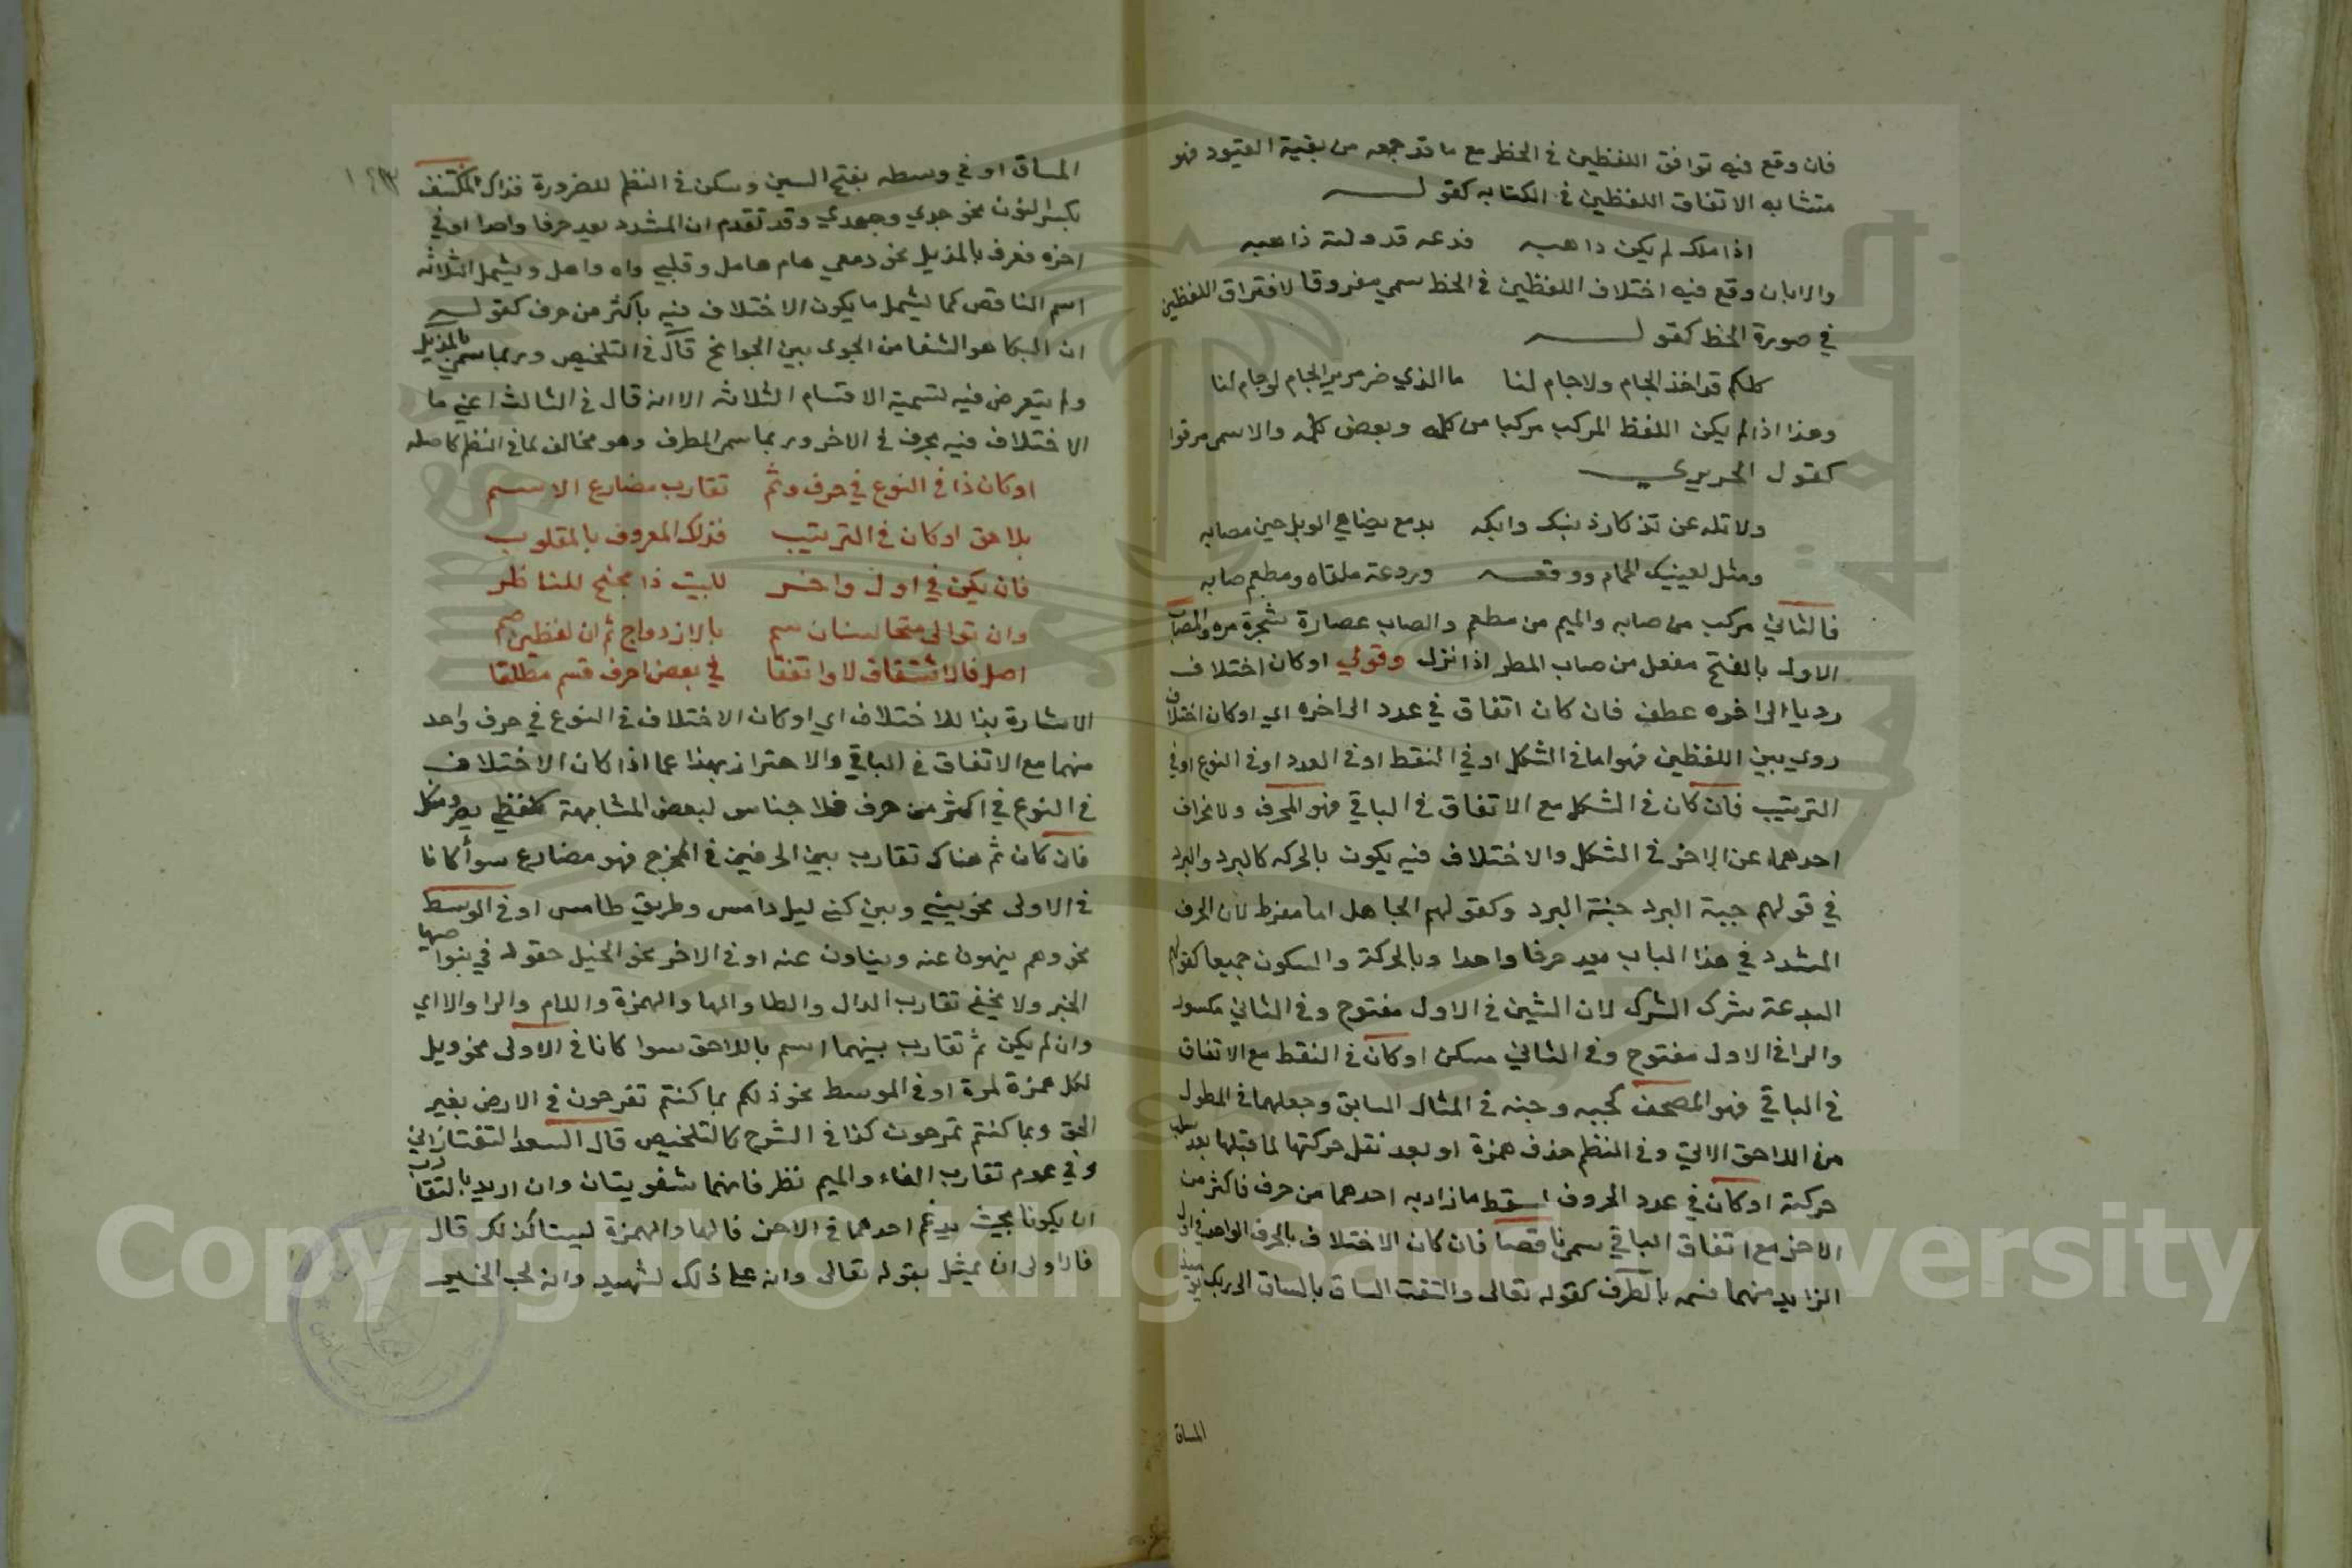 فان وقع فيه توافق اللفظين في الخط مع ما قد جمعه من بقية القيود فهو
متشابه الاتفاق اللفظين في الكتابه كقوله
اذا ملك لم يكن ذا هبه فدعه فدولته ذاهبه
والا بان وقع فيه اختلاف اللفظين في الخط سمي مفروقا لافتراق اللفظين
في صورة الخط كقوله
كلكم قد اخذ الجام ولا جام لنا ما الذي ضر مدير الجام لو جاملنا
وهذا اذا لم يكن اللفظ المركب مركبا من كلمه وبعض كلمه والا سمي مرفوا
كقول الحريري
ولا تله عن تذكار ذنبك وابكه بدمع يضاهي الوبل حين مصابه
ومثل لعينيك الحمام ووقعه وروعة ملقاه ومطعم صابه
فالثاني مركب من صابه والميم من مطعم والصاب عصارة شجرة مره والمصاب
الاول بالفتح مفعل من صاب المطر اذا نزل وقولي او كان اختلاف
رديا الى اخره عطف فان كان اتفاق في عدد الى اخره اي او كان اختلاف
روي بين اللفظين فهو اما في الشكل او في النقط او في العدد او في النوع او في
الترتيب فان كان في الشكل مع الاتفاق في الباقي فهو المحرف ولانحراف
احدهما عن الاخر في الشكل والاختلاف فيه يكون بالحركه كالبرد والبرد
في قولهم جبة البرد جنة البرد وكقولهم الجاهل اما مفرط لان الحرف
المشدد في هذا الباب يعد حرفا واحدا وبالحركة والسكون جميعا كقولهم
البدعة شرك الشرك لان الشين في الاول مفتوح وفي الثاني مكسور
والرا في الاول مفتوح وفي الثاني مسكن او كان في النقط مع الاتفاق
في الباقي فهو المصحف كجبه وجنه في المثال السابق وجعلهما في المطول
من اللاحق الاتي وفي النظم حذف همزة او بعد نقل حركتها لما قبلها بعد سلب
حركته او كان في عدد الحروف اسقط ما زاد به احدهما من حرف فاكثر من
الاخر مع اتفاق الباقي سمي ناقصا فان كان الاختلاف بالحرف الواحد في اول
الزايد منهما فسمه بالطرف كقوله تعالى والتفت الساق بالساق الى ربك يومئذ
المساق
١٤٣
المساق او في وسطه بفتح السين وسكن في النظم للضرورة فذاك المكتنف
بكسر النون نحو جدي وجهدي وقد تقدم ان المشدد يعد حرفا واحدا او في
اخره فعرف بالمذيل نحو دمعي هام هامل وقلبي واه واهل ويشمل الثلاثه
اسم الناقص كما يشمل ما يكون الاختلاف فيه باكثر من حرف كقوله
ان البكا هو الشفا من الجوى بين الجوانح قال في التلخيص وربما سمي بالمذيل
ولم يتعرض فيه لتسمية الاقسام الثلاثه الا انه قال في الثالث اعني ما
الاختلاف فيه بحرف في الاخر وربما سمي المطرف وهو مخالف لما في النظم كاصله
او كان ذا في النوع في حرف وثم تقارب مضارع الاسم
بلاحق او كان في الترتيب فذلك المعروف بالمقلوب
فان يكن في اول واخر للبيت ذا مجنح للمناظر
وان توالى متجانسان سم بالازدواج ثم ان لفظين ضم
اصل فالاشتقاق لا واتفقا في بعض احرف قسم مطلقا
الاشارة بذا للاختلاف اي او كان الاختلاف في النوع في حرف واحد
منهما مع الاتفاق في الباقي والاحتراز بهذا عما اذا كان الاختلاف
في النوع في اكثر من حرف فلا جناس لبعض المشابهة كلفظي
فان كان ثم هناك تقارب بين الحرفين في المخرج فهو مضارع سوأ كانا
في الاولى نحو بيني وبين كني ليل دامس وطريق طامس او في الوسط
نحو وهم ينهون عنه وينأون عنه او في الاخر نحو الخيل معقود في نواصيها
الخير ولا يخفى تقارب الدال والطا والها والهمزة واللام والرا والا اي
وان لم يكن ثم تقارب بينهما اسم باللاحق سوا كانا في الاولى نحو ويل
لكل همزة لمزة او في الوسط نحو ذلكم بما كنتم تفرحون في الارض بغير
الحق وبما كنتم تمرحون كذا في الشرح كالتلخيص قال السعد التفتازاني
وفي عدم تقارب الفاء والميم نظر فانهما شفويتان وان اريد بالتقارب
ان يكونا بحيث يدغم احدهما في الاخر فالها والهمزة ليستا كذلك قال
فالاولى ان يمثل بقوله تعالى وانه على ذلك لشهيد وانه لحب الخير
Copyright © King Saud University